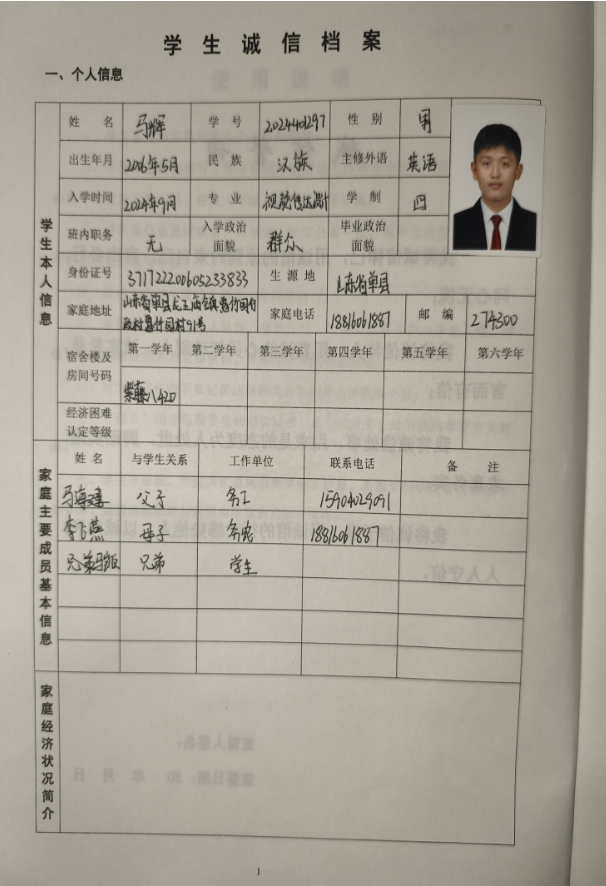 学生诚信档案
一、个人信息
学生本人信息
姓名 马辉 学号 202440297 性别 男
出生年月 2006年5月 民族 汉族 主修外语 英语
入学时间 2024年9月 专业 视觉传达设计 学制 四
班内职务 无 入学政治面貌 群众 毕业政治面貌
身份证号 371722200605233833 生源地 山东省单县
家庭地址 山东省单县龙王庙镇 家庭电话 18816061887 邮编 274300
宿舍楼及房间号码 第一学年 第二学年 第三学年 第四学年 第五学年 第六学年
八420
经济困难认定等级
家庭主要成员基本信息
姓名 与学生关系 工作单位 联系电话 备注
马海建 父子 务工 15904029091
李飞燕 母子 务农 18816061887
兄弟 学生
家庭经济状况简介
1